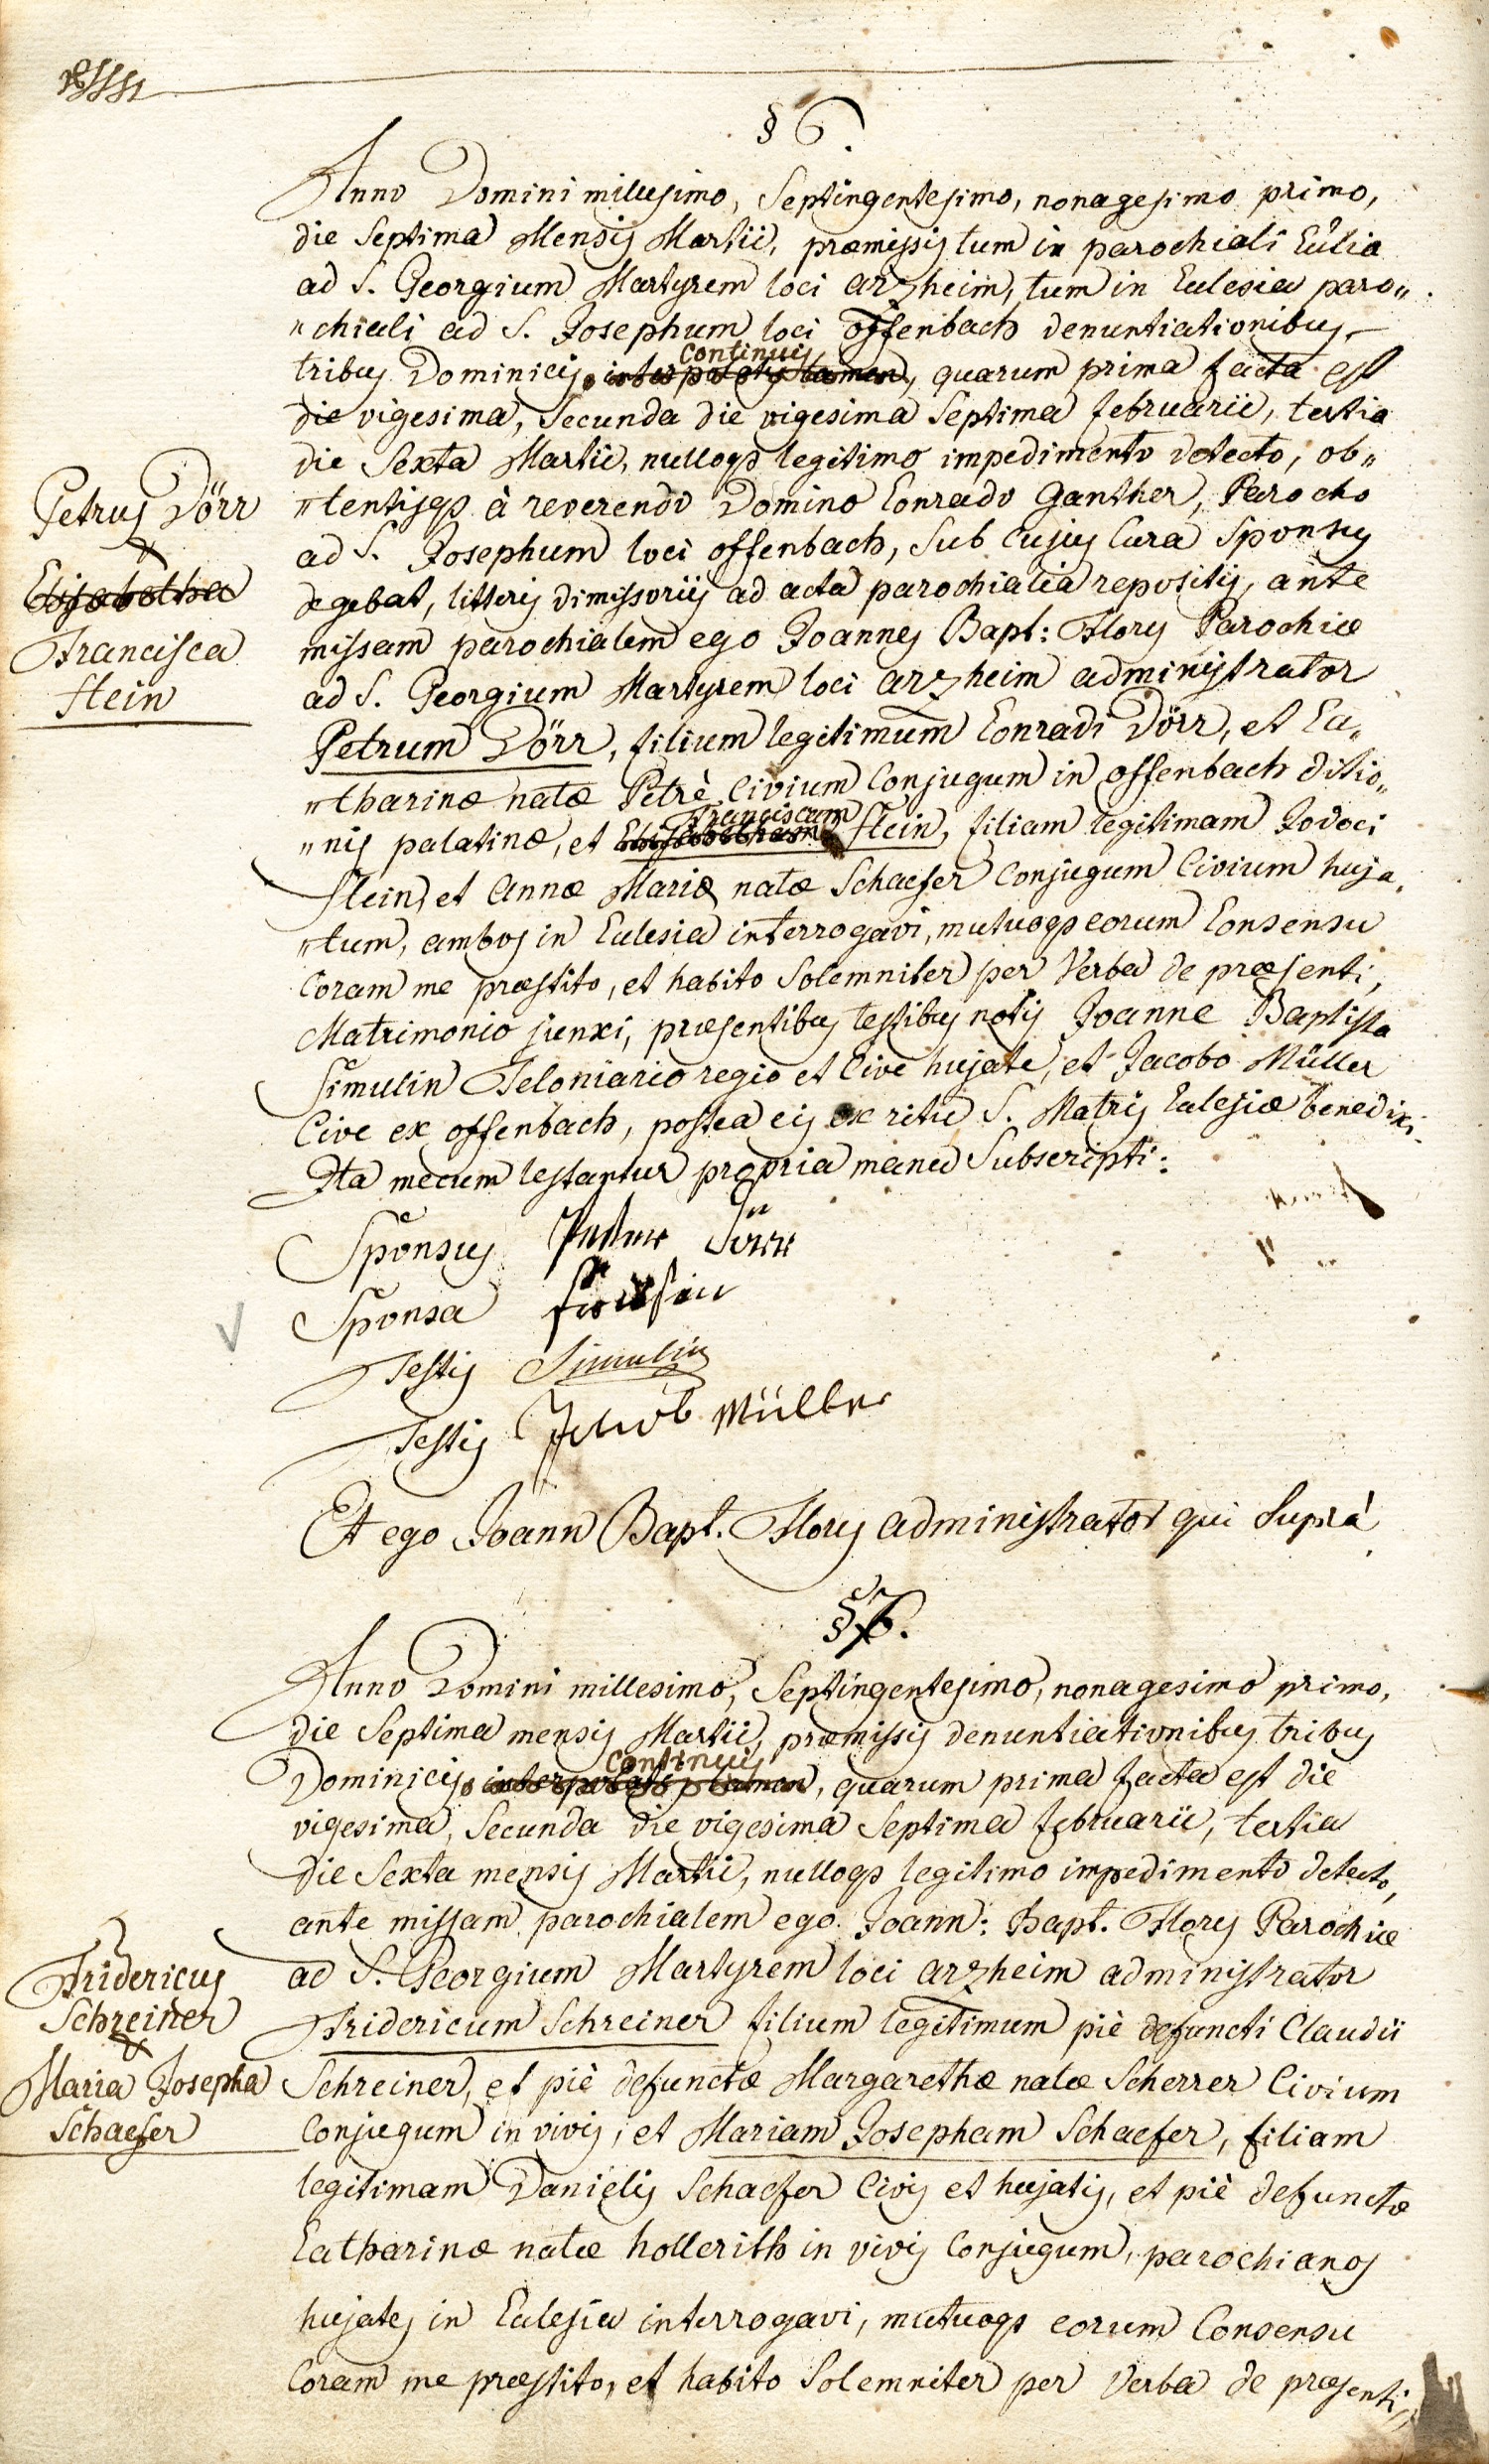 § 6.
Anno Domini millesimo, Septingentesimo, nonagesimo primo,
die Septima Mensis Martii, præmissis tum in parochiali Ecclia
ad S. Georgium Martyrem loci arzheim, tum in Ecclesia paro„
„chiali ad S. Josephum loci offenbach denuntiationibus
continuis
tribus Dominicis, interpolatis tamen, quarum prima facta est
die vigesima, Secunda die vigesima Septima februarii, tertia
die Sexta Martii, nulloqs legitimo impedimento detecto, ob„
„tentisqs à reverendo Domino Conrado Ganther, Parocho
ad S. Josephum loci offenbach, sub cujus Cura Sponsus
degebat, litteris dimissoriis ad acta parochialia repositis, ante
missam parochialem ego Joannes Bapt: Flory Parochiæ
ad S. Georgium Martyrem loci arzheim administrator
Petrum Dörr, filium legitimum Conradi Dörr, et Ca„
„tharinæ natæ Petrè Civium Conjugum in offenbach ditio„
Franciscam
„nis palatinæ, et Elisabetham Stein, filiam legitimam Jodoci
Stein, et Annæ Mariæ natæ Schaefer Conjugum Civium huja„
„tum, ambos in Ecclesia interrogavi, mutuoqs eorum Consensu
Coram me præstito, et habito Solemniter per Verba de præsenti,
Matrimonio junxi, præsentibus testibus notis Joanne Baptista
Simulin Teloniario regio et Cive hujate, et Jacobo Müller
Cive ex offenbach, postea eis ex ritu S. Matris Ecclesiæ benedixi.
Ita mecum testantur propria manu Subscripti:
Petrus Dörr
&
Elisabetha
Francisca
Stein
Sponsus Peter Dörr
Sponsa
Testis Simulin
Testis Jakob Müller
Et ego Joann Bapt. Flory administrator qui Suprà
§ 7.
Anno Domini millesimo, Septingentesimo, nonagesimo primo,
die Septima mensis Martii, præmissis denuntiationibus tribus
Continuis
Dominicis, interpolatis tamen, quarum prima facta est die
vigesima, Secunda die vigesima Septima februarii, tertia
die Sexta mensis Martii, nulloqs legitimo impedimento detecto,
ante missam parochialem ego Joann: Bapt. Flory Parochiæ
ad S. Georgium Martyrem loci arzheim administrator
Fridericum Schreiner filium legitimum piè defuncti Claudii
Schreiner, et piè defunctæ Margarethæ natæ Scherrer Civium
Conjugum in vivis, et Mariam Josepham Schaefer, filiam
legitimam Danielis Schaefer Civis et hujatis, et piè defunctæ
Catharinæ natæ hollerith in vivis Conjugum, parochianos
hujates in Ecclesia interrogavi, mutuoqs eorum Consensu
Coram me præstito, et habito Solemniter per Verba de præsenti,
Fridericus
Schreiner
&
Maria Josepha
Schaefer